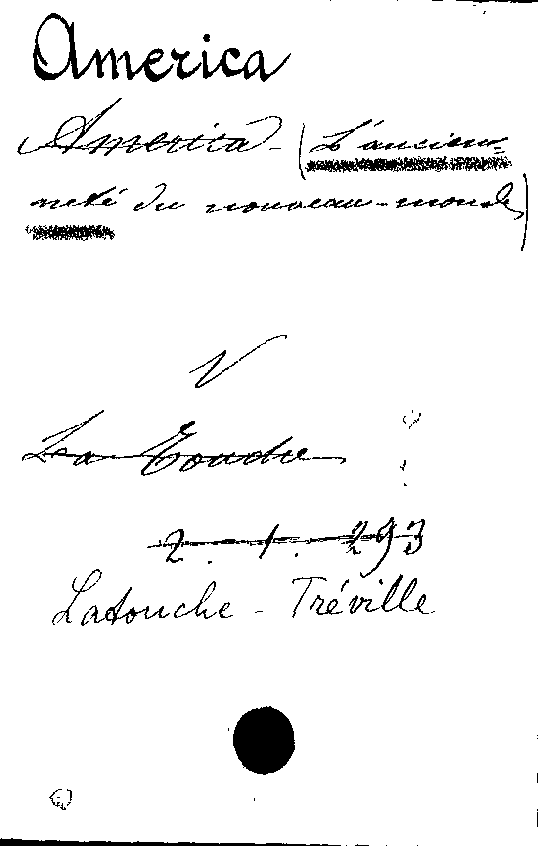 America
America - (L'ancien-
neté du nouveau-monde)
V
La Touche
2. 1. 293
Latouche - Tréville